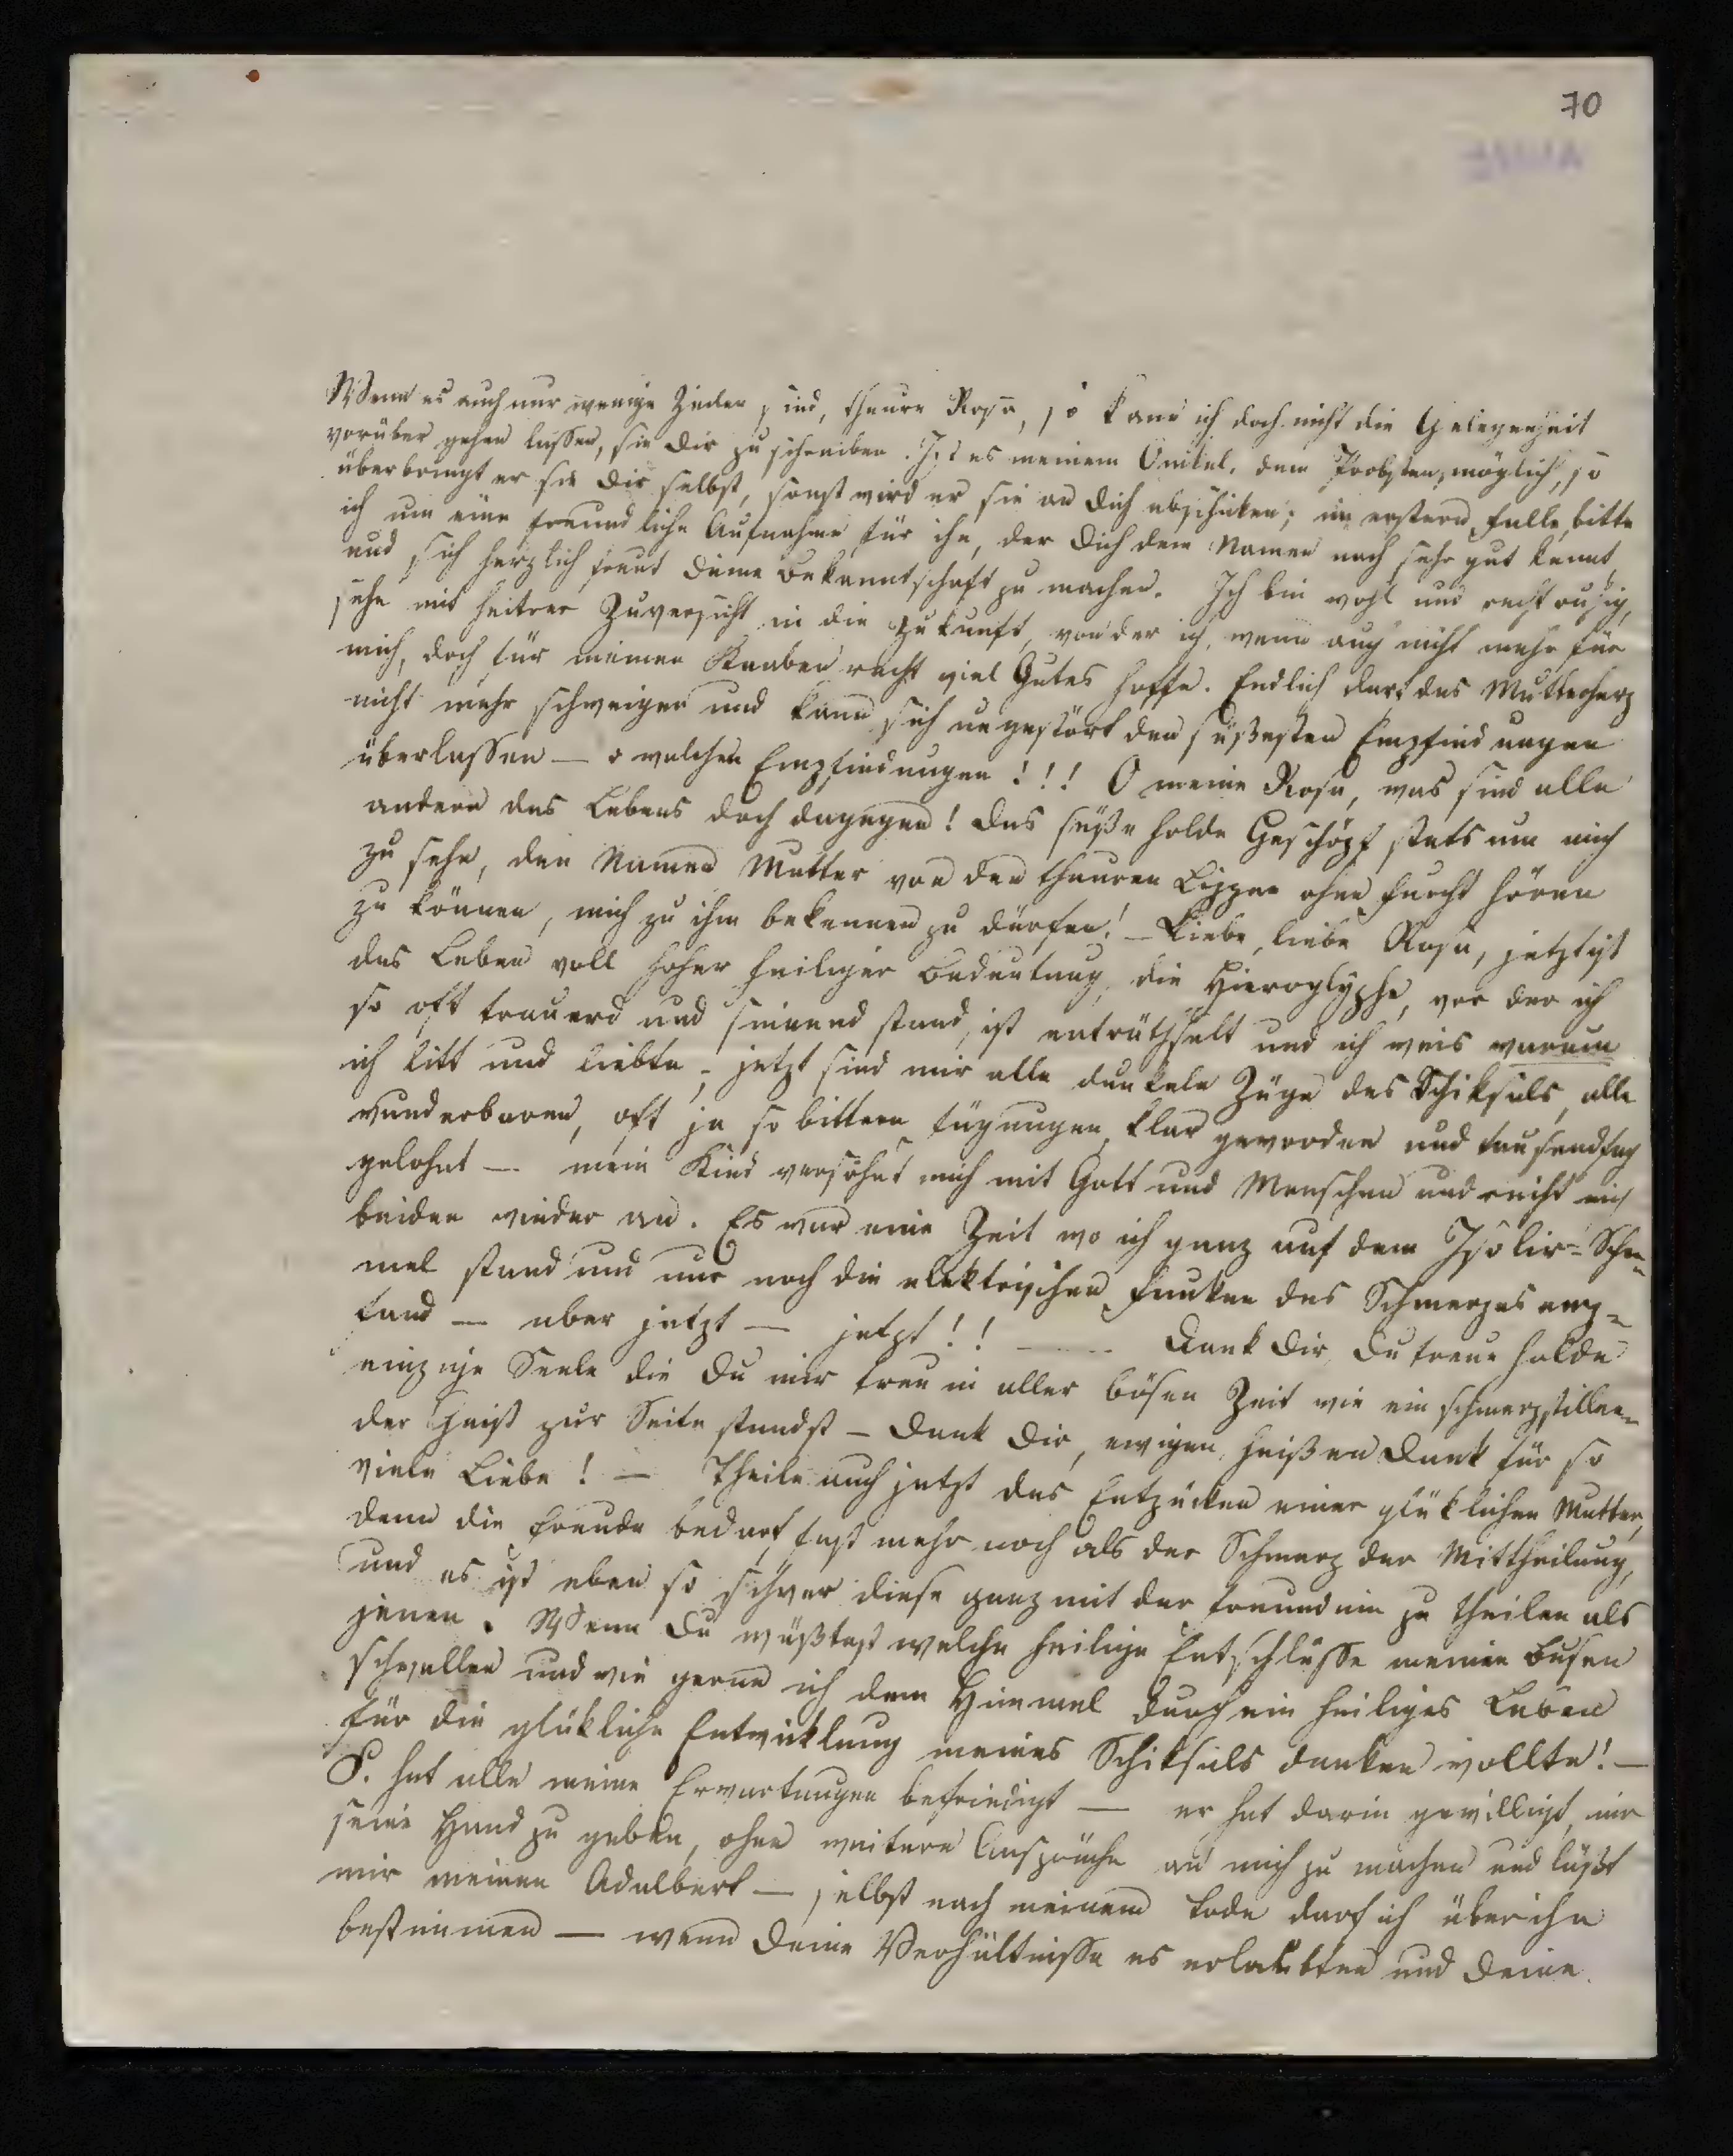 70
Wenn es auch nur wenige Zeilen sind, theure Rosa, so kann ich doch nicht die Gelegenheit
vorüber gehen lassen, sie Dir zu schreiben. Ist es meinem Onkel, dem Probsten, möglich, so
überbringt er sie Dir selbst, sonst wird er sie an Dich abschicken; im erstern Falle, bitte
ich um eine freundliche Aufnahme für ihn, der Dich dem Namen nach sehr gut kennt,
und sich herzlich freut Deine Bekanntschaft zu machen. Ich bin wohl und recht ruhig,
sehe mit heitrer Zuversicht in die Zukunft, von der ich, wenn auch nicht mehr für
mich, doch für meinen Knaben recht viel Gutes hoffe. Endlich darf das Mutterherz
nicht mehr schweigen und kann sich ungestört den süßesten Empfindungen
überlassen — o welchen Empfindungen!!! O meine Rosa, was sind alle
andern des Lebens doch dagegen! Das süße holde Geschöpf stets um mich
zu sehn, den Namen Mutter von den theuren Lippen ohne Furcht hören
zu können, mich zu ihm bekennen zu dürfen! — Liebe, liebe Rosa, jetzt ist
das Leben voll hoher heiliger Bedeutung, die Hieroglyphe, vor der ich
so oft trauernd und sinnend stand, ist enträthselt und ich weis warum
ich litt und liebte; jetzt sind mir alle dunkeln Züge des Schiksals, alle
wunderbaren, oft ja so bittern Fügungen, klar geworden und tausendfach
gelohnt — mein Kind versöhnt mich mit Gott und Menschen und reiht mich
beiden wieder an. Es war eine Zeit wo ich ganz auf dem Isolir-Sche-
mel stand und nur noch die elektrischen Funken des Schmerzes emp-
fand — aber jetzt — jetzt!! — Dank Dir, Du treue holde
einzige Seele die Du mir treu in aller bösen Zeit wie ein schmerzstillen-
der Geist zur Seite standst — Dank Dir, ewigen, heißen Dank für so
viele Liebe! — Theile auch jetzt das Entzücken einer glüklichen Mutter,
denn die Freude bedarf fast mehr noch als der Schmerz der Mittheilung,
und es ist eben so schwer diese ganz mit der Freundinn zu theilen als
jenen. Wenn Du wüßtest welche heilige Entschlüsse meinen Busen
schwellen und wie gerne ich dem Himmel durch ein heiliges Leben
für die glükliche Entwicklung meines Schiksals danken wollte! —
P. hat alle meine Erwartungen befriedigt — er hat darin gewilligt, mir
seine Hand zu geben, ohne weitere Ansprüche an mich zu machen und läßt
mir meinen Adalbert — selbst nach meinem Tode darf ich über ihn
bestimmen — wenn Deine Verhältnisse es erlaubten und Deine